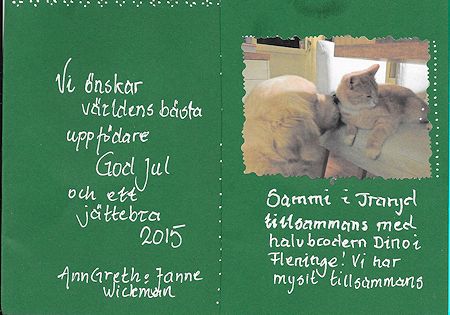 Vi önskar
världens bästa
uppfödare
God Jul
och ett
jättebra
2015
AnnGreth & Janne
Wickman
Sammi i Traryd
tillsammans med
halvbrodern Dino i
Fleninge! Vi har
myst tillsammans